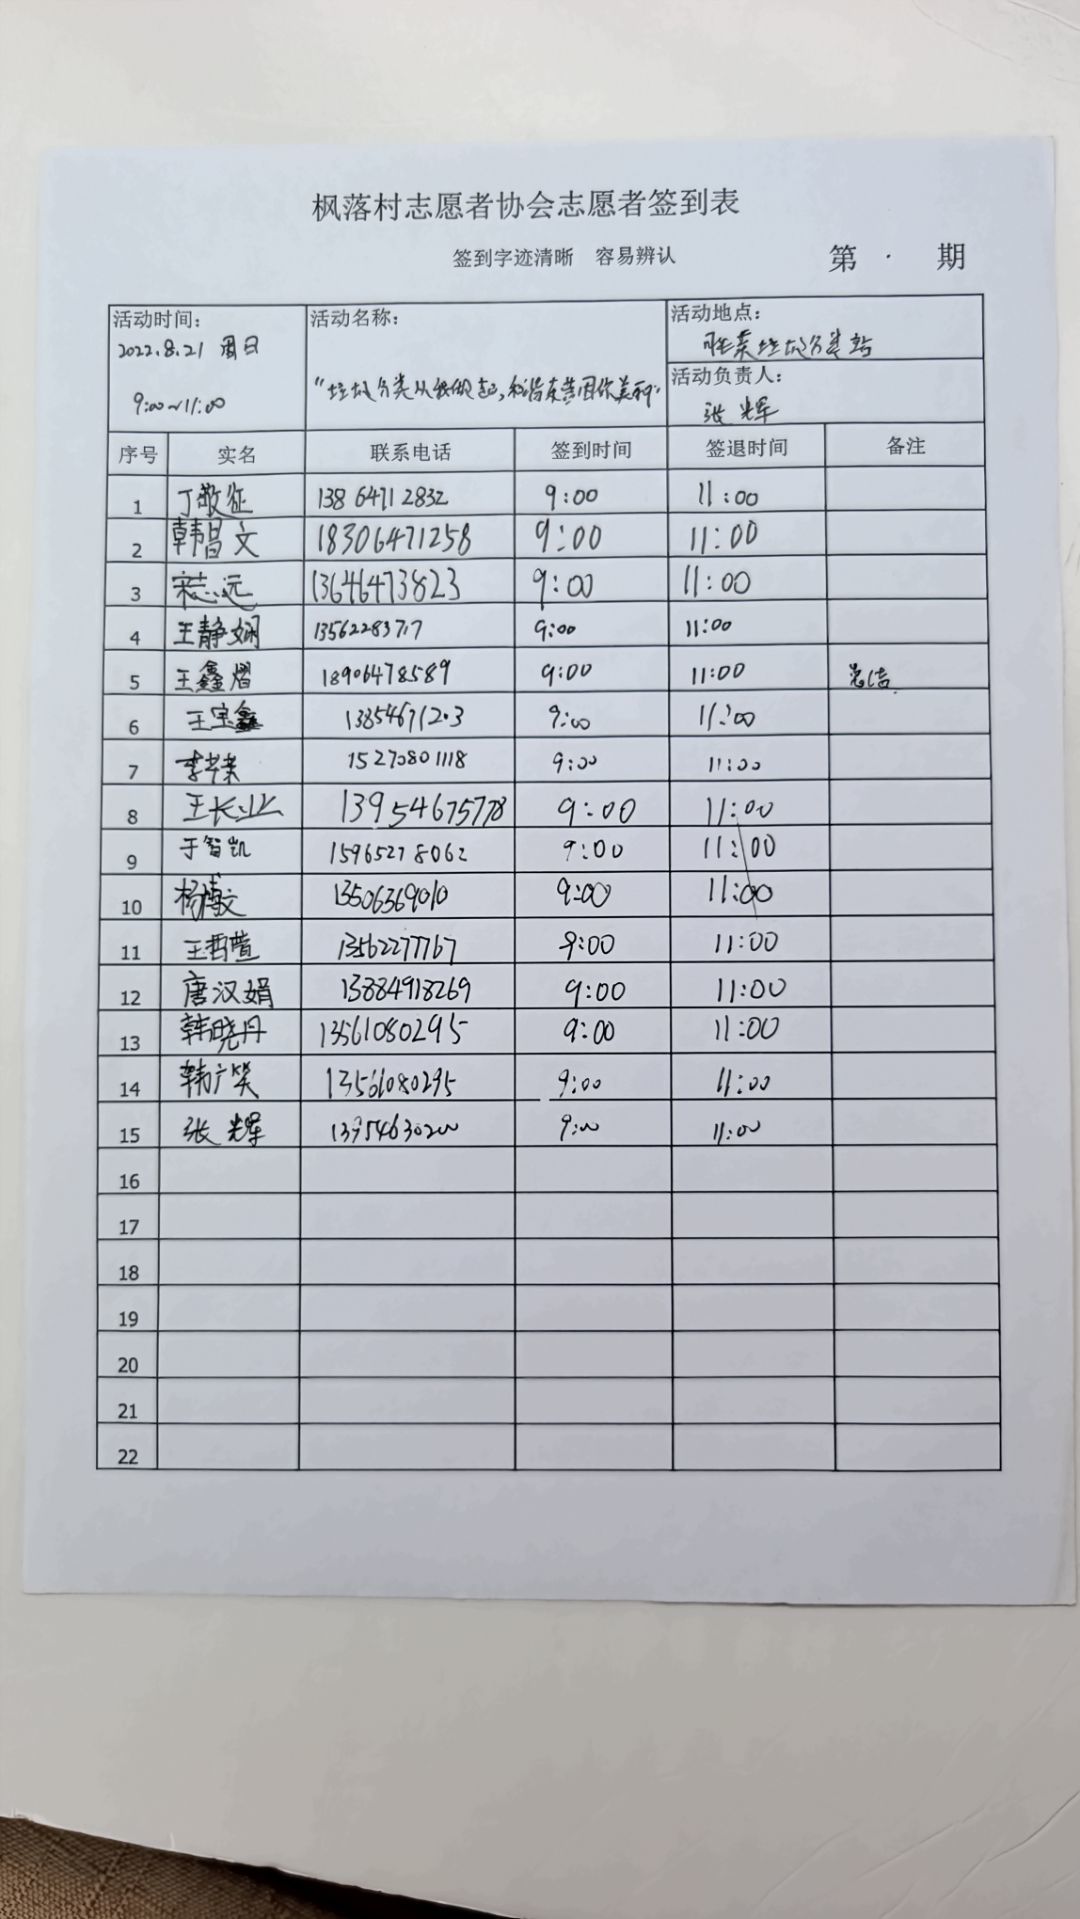 枫落村志愿者协会志愿者签到表
签到字迹清晰 容易辨认 第 · 期
活动时间： 活动名称： 活动地点：
2022.8.21 周日 垃圾分类站
活动负责人：
9:00~11:00 "垃圾分类从我做起, 张辉
序号 实名 联系电话 签到时间 签退时间 备注
1 丁敬征 13864712832 9:00 11:00
2 韩昌文 18306471258 9:00 11:00
3 宋志远 13646473823 9:00 11:00
4 王静娴 13562283717 9:00 11:00
5 王鑫熠 18906478589 9:00 11:00 总结
6 王宝鑫 9:00 11:00
7 15270801118 9:00 11:00
8 王长业 13954675778 9:00 11:00
9 于智凯 15965278062 9:00 11:00
10 杨博文 13506369010 9:00 11:00
11 王哲萱 13562277767 9:00 11:00
12 唐汉娟 13884918269 9:00 11:00
13 韩晓丹 13561080295 9:00 11:00
14 韩广笑 13561080295 9:00 11:00
15 张辉 13954630200 9:00 11:00
16
17
18
19
20
21
22